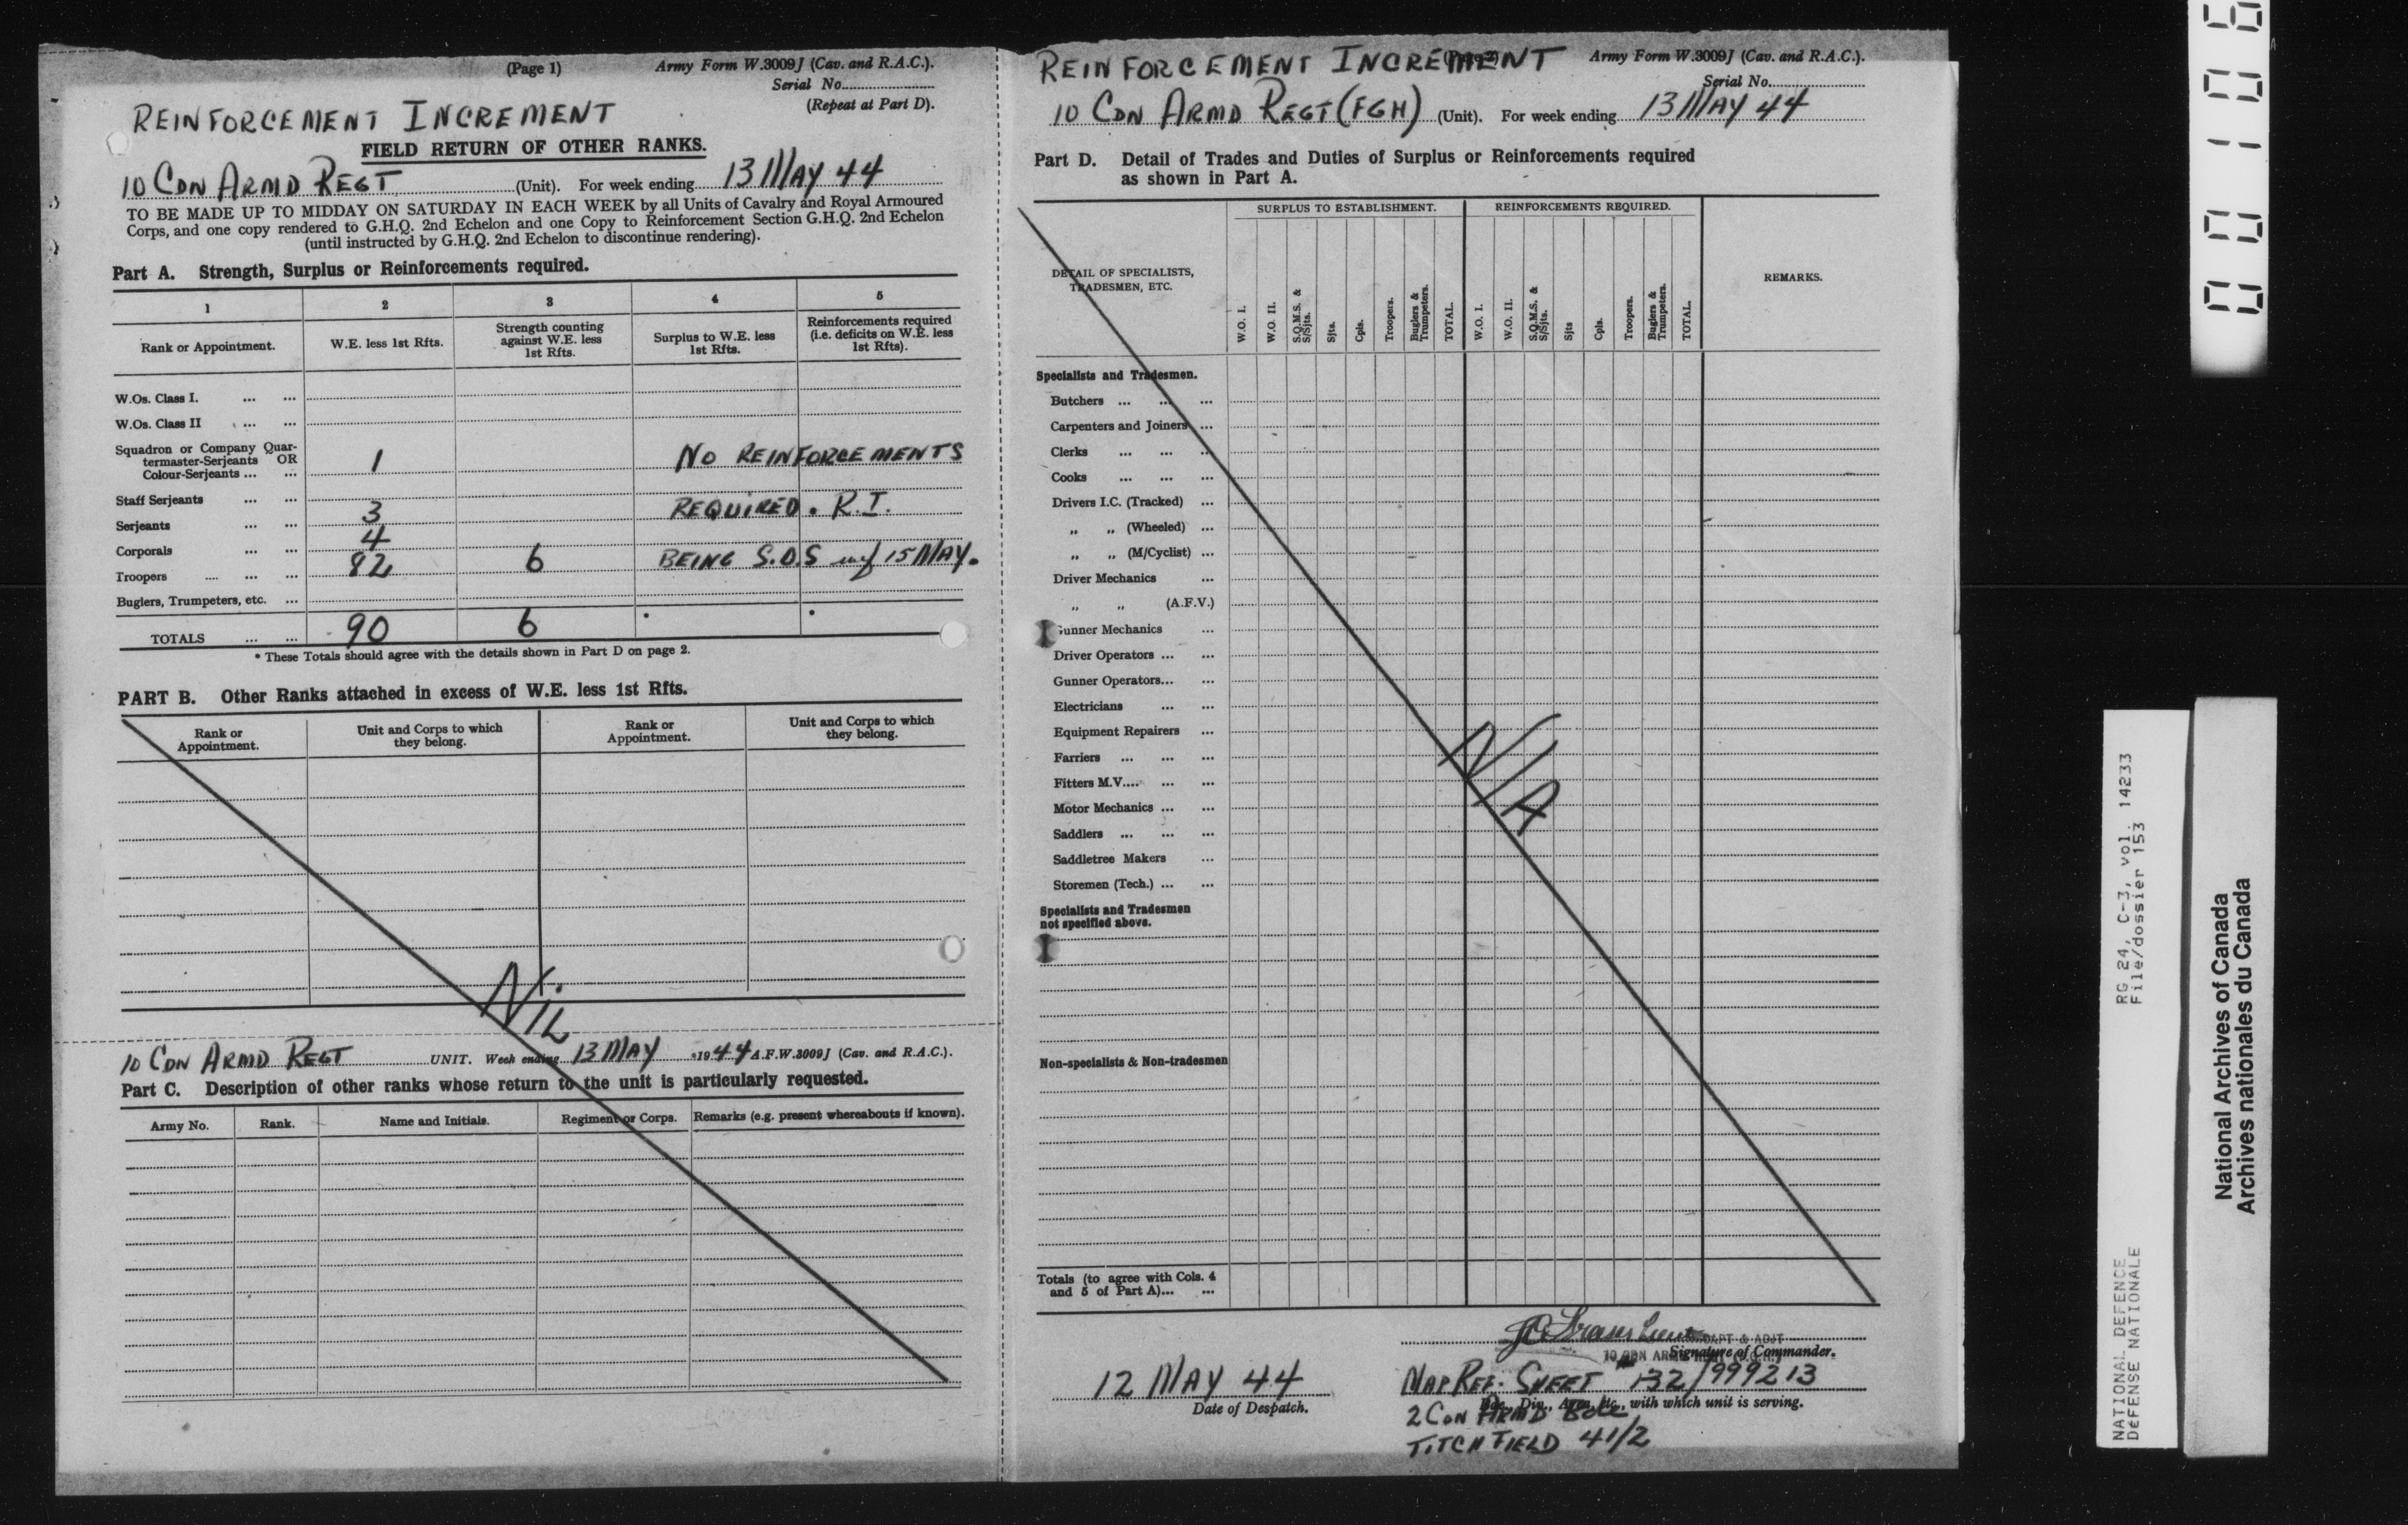 (Page 1)
Army Form W.3009J (Cav. and R.A.C.).
Serial No.
(Repeat at Part D).
REINFORCEMENT INCREMENT
FIELD RETURN OF OTHER RANKS.
10 CDN ARMD REGT (Unit). For week ending 13 MAY 44
TO BE MADE UP TO MIDDAY ON SATURDAY IN EACH WEEK by all Units of Cavalry and Royal Armoured
Corps, and one copy rendered to G.H.Q. 2nd Echelon and one Copy to Reinforcement Section G.H.Q. 2nd Echelon
(until instructed by G.H.Q. 2nd Echelon to discontinue rendering).
Part A. Strength, Surplus or Reinforcements required.
1 2 3 4 5
Rank or Appointment.
W.E. less 1st Rfts.
Strength counting
against W.E. less
1st Rfts.
Surplus to W.E. less
1st Rfts.
Reinforcements required
(i.e. deficits on W.E. less
1st Rfts).
W.Os. Class I. ... ...
W.Os. Class II ... ...
Squadron or Company Quar-
termaster-Serjeants OR
Colour-Serjeants ... ...
1 NO REINFORCEMENTS
Staff Serjeants ... ...
3 REQUIRED. R.I.
Serjeants ... ...
4
Corporals ... ...
82 6 BEING S.O.S wef 15 MAY.
Troopers .... ... ...
Buglers, Trumpeters, etc. ...
TOTALS ... ... 90 6 * *
* These Totals should agree with the details shown in Part D on page 2.
PART B. Other Ranks attached in excess of W.E. less 1st Rfts.
Rank or
Appointment.
Unit and Corps to which
they belong.
Rank or
Appointment.
Unit and Corps to which
they belong.
NIL
10 CDN ARMD REGT UNIT. Week ending 13 MAY 1944 A.F.W.3009J (Cav. and R.A.C.).
Part C. Description of other ranks whose return to the unit is particularly requested.
Army No. Rank. Name and Initials. Regiment or Corps. Remarks (e.g. present whereabouts if known).
REINFORCEMENT INCREMENT
Army Form W.3009J (Cav. and R.A.C.).
Serial No.
10 CDN ARMD REGT (FGH) (Unit). For week ending 13 MAY 44
Part D. Detail of Trades and Duties of Surplus or Reinforcements required
as shown in Part A.
SURPLUS TO ESTABLISHMENT. REINFORCEMENTS REQUIRED.
DETAIL OF SPECIALISTS,
TRADESMEN, ETC.
W.O. I.
W.O. II.
S.Q.M.S. &
S/Sjts.
Sjts.
Cpls.
Troopers.
Buglers &
Trumpeters.
TOTAL.
W.O. I.
W.O. II.
S.Q.M.S. &
S/Sjts.
Sjts
Cpls.
Troopers.
Buglers &
Trumpeters.
TOTAL.
REMARKS.
Specialists and Tradesmen.
Butchers ... ... ...
Carpenters and Joiners ...
Clerks ... ... ...
Cooks ... ... ...
Drivers I.C. (Tracked) ...
„ „ (Wheeled) ...
„ „ (M/Cyclist) ...
Driver Mechanics ...
„ „ (A.F.V.)
Gunner Mechanics ...
Driver Operators ... ...
Gunner Operators... ...
Electricians ... ...
Equipment Repairers ...
Farriers ... ... ...
Fitters M.V.... ... ...
Motor Mechanics ... ...
Saddlers ... ... ...
Saddletree Makers ...
Storemen (Tech.) ... ...
Specialists and Tradesmen
not specified above.
N/A
Non-specialists & Non-tradesmen
Totals (to agree with Cols. 4
and 5 of Part A)... ...
CAPT & ADJT
Signature of Commander.
10 CDN ARMD
12 MAY 44
Date of Despatch.
MAP REF. SHEET 132/999213
Bde., Div., Area, etc., with which unit is serving.
2 CDN ARMD BDE
TITCHFIELD 41/2
RG 24, C-3, vol. 14233
File/dossier 153
NATIONAL DEFENCE
DÉFENSE NATIONALE
National Archives of Canada
Archives nationales du Canada